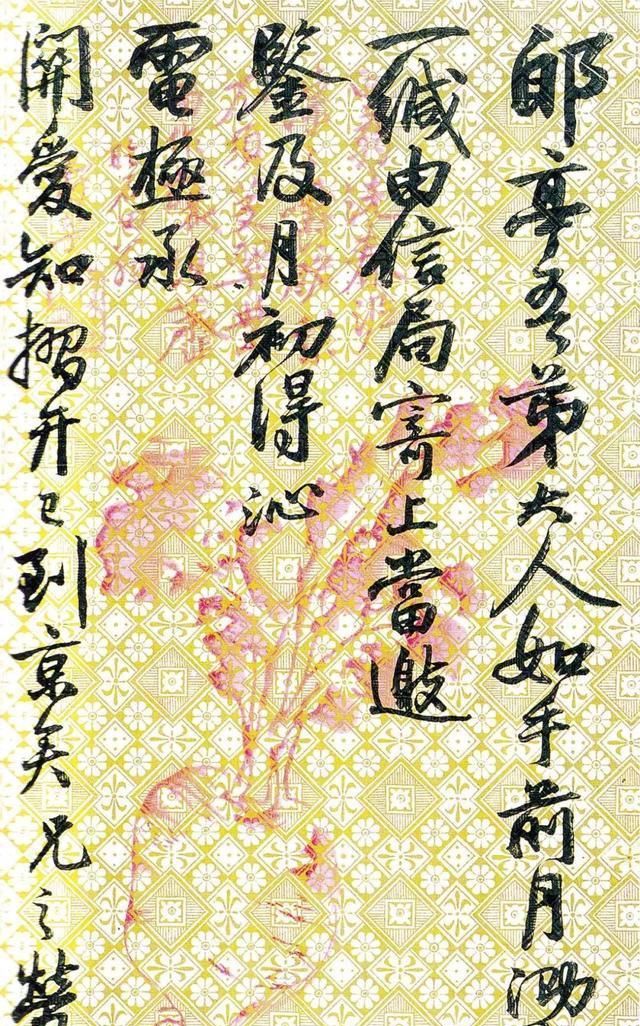 郋亭吾弟大人如手前月泐
一緘由信局寄上當邀
鑒及月初得沁
電極承
關愛知摺弁已到京矣兄之榮